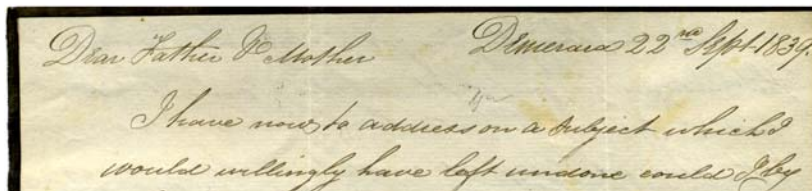 Dear Father & Mother Demerara 22nd Sept. 1839.
you
I have now to address on a subject which I
would willingly have left undone could I by